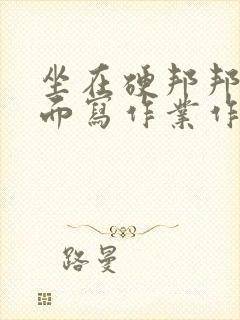 坐在硬邦邦
而寫作業作
路曼